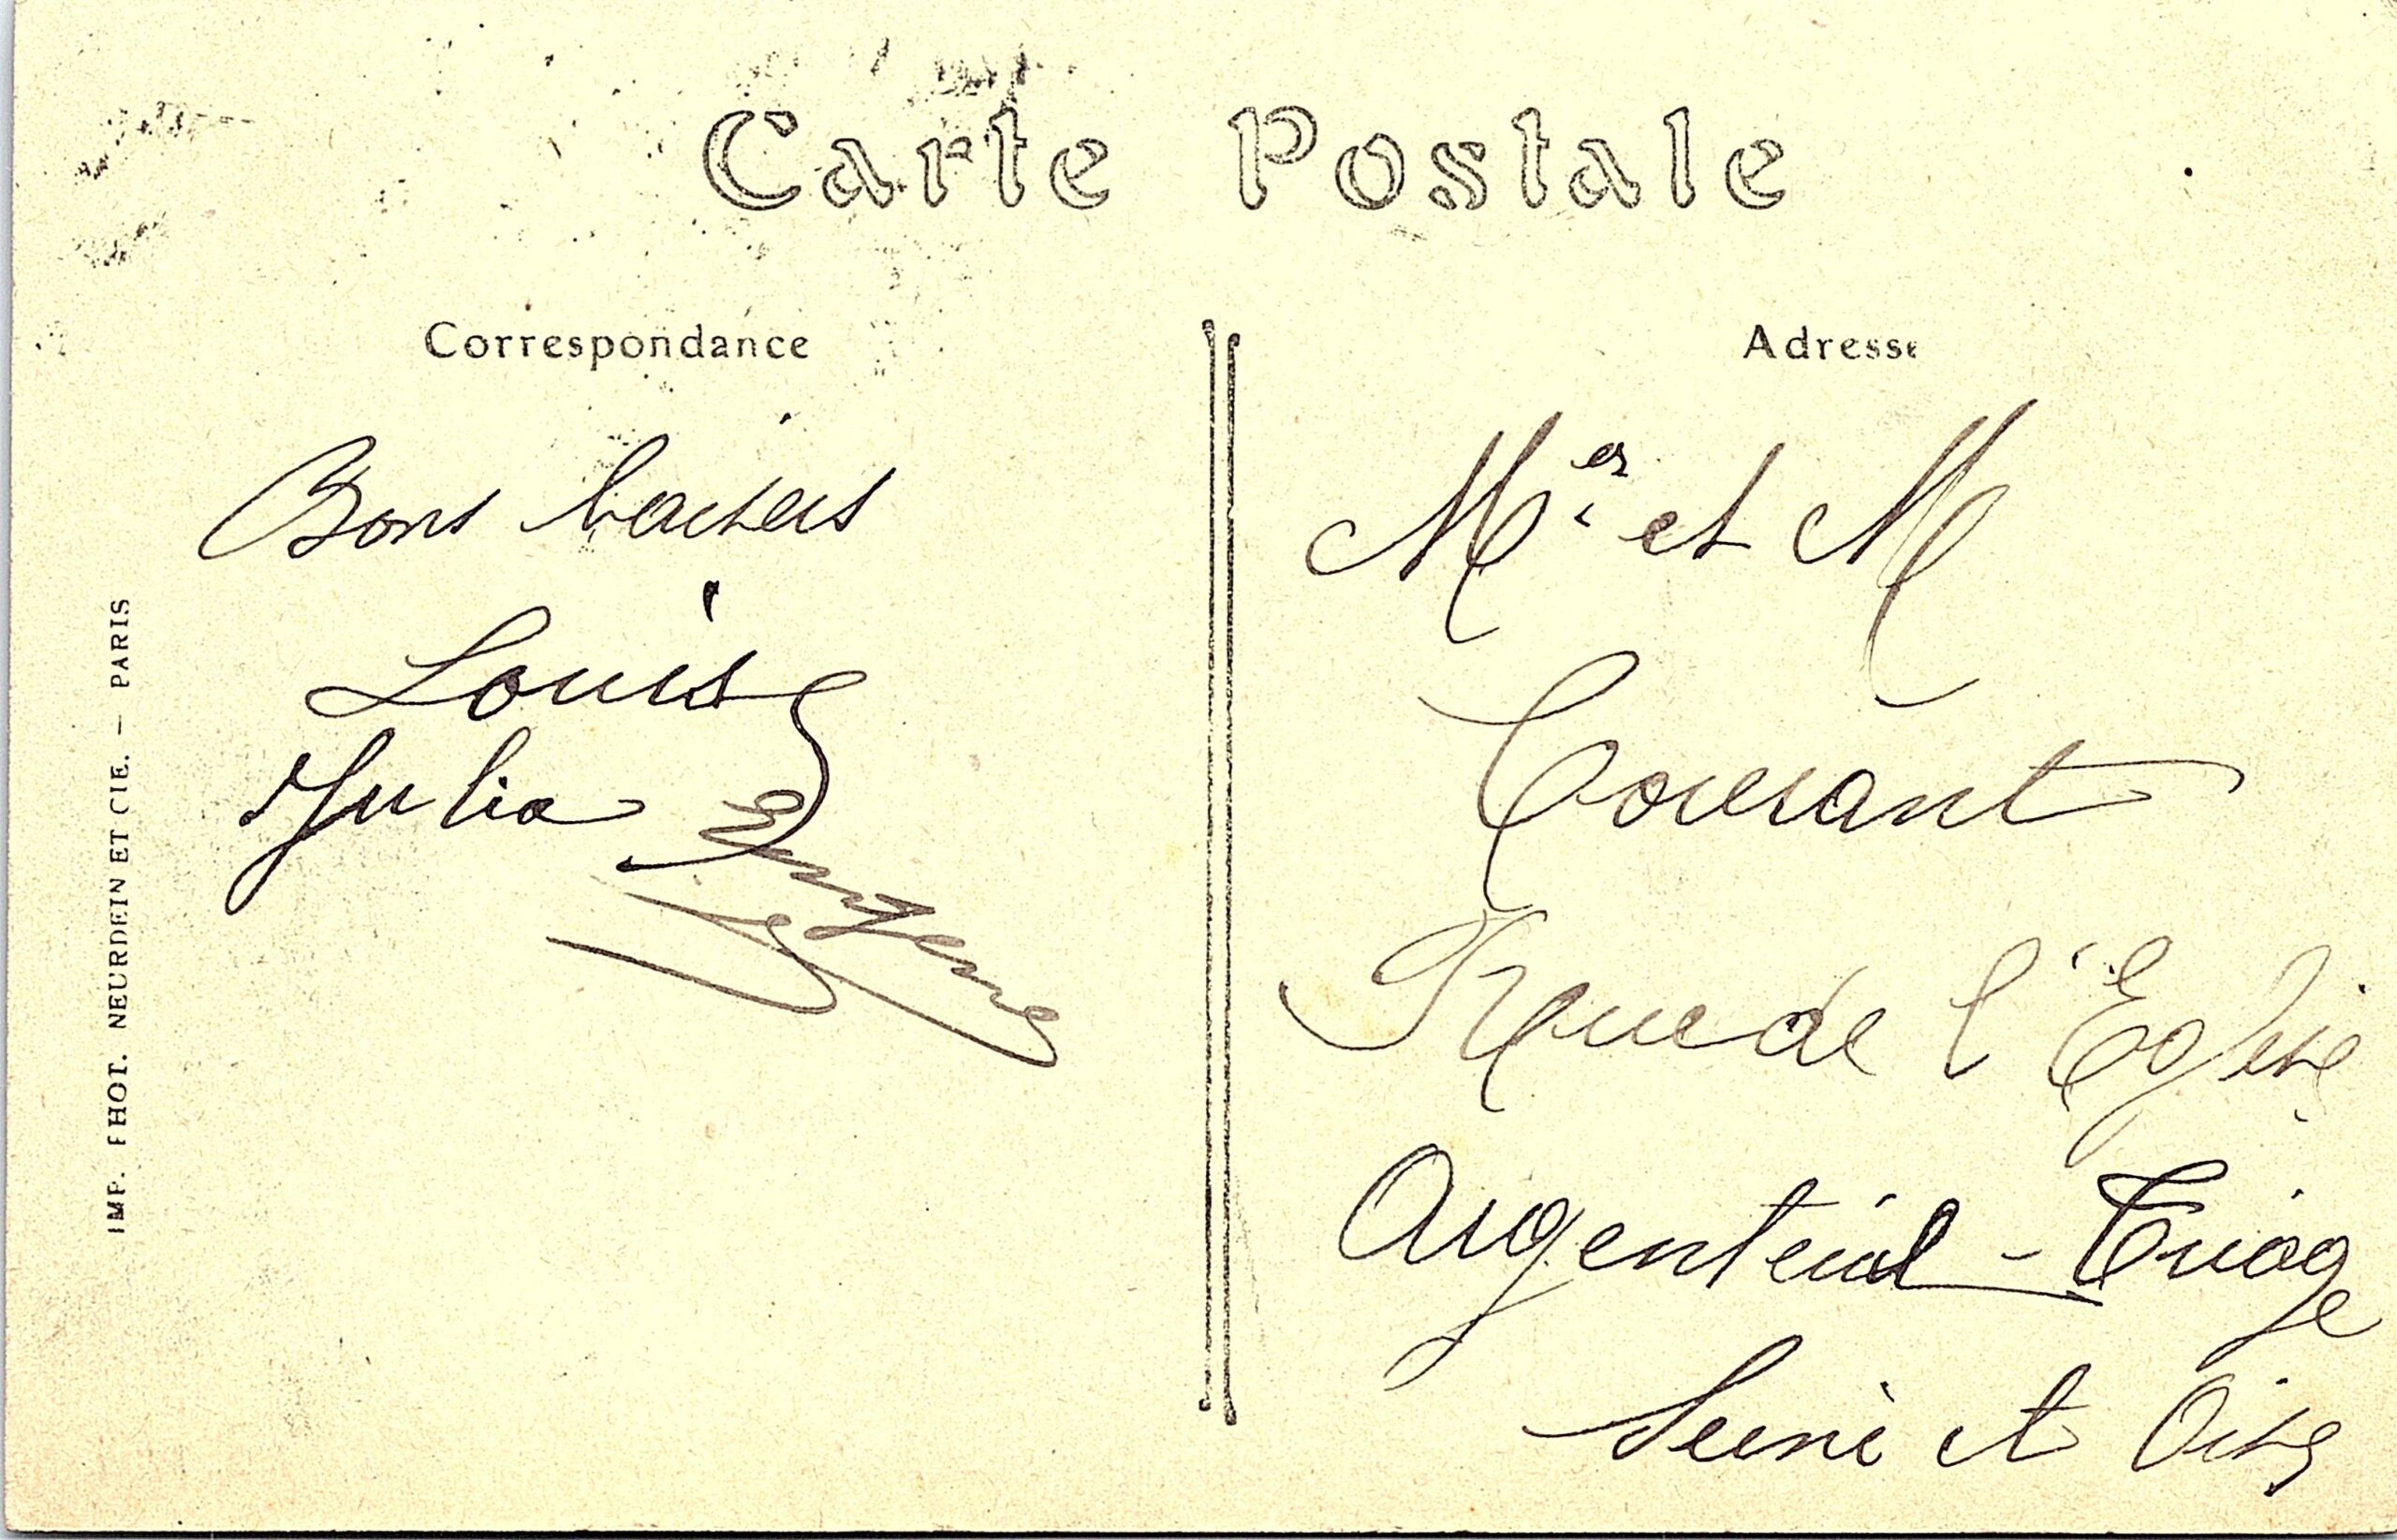 Carte Postale
Correspondance
Bons baisers
Louis
Julia
Eugene
IMP. PHOT. NEURDEIN ET CIE. — PARIS
Adresse
Mr et M
Courant
Rue de l'Eglise
Argenteuil - Triage
Seine et Oise